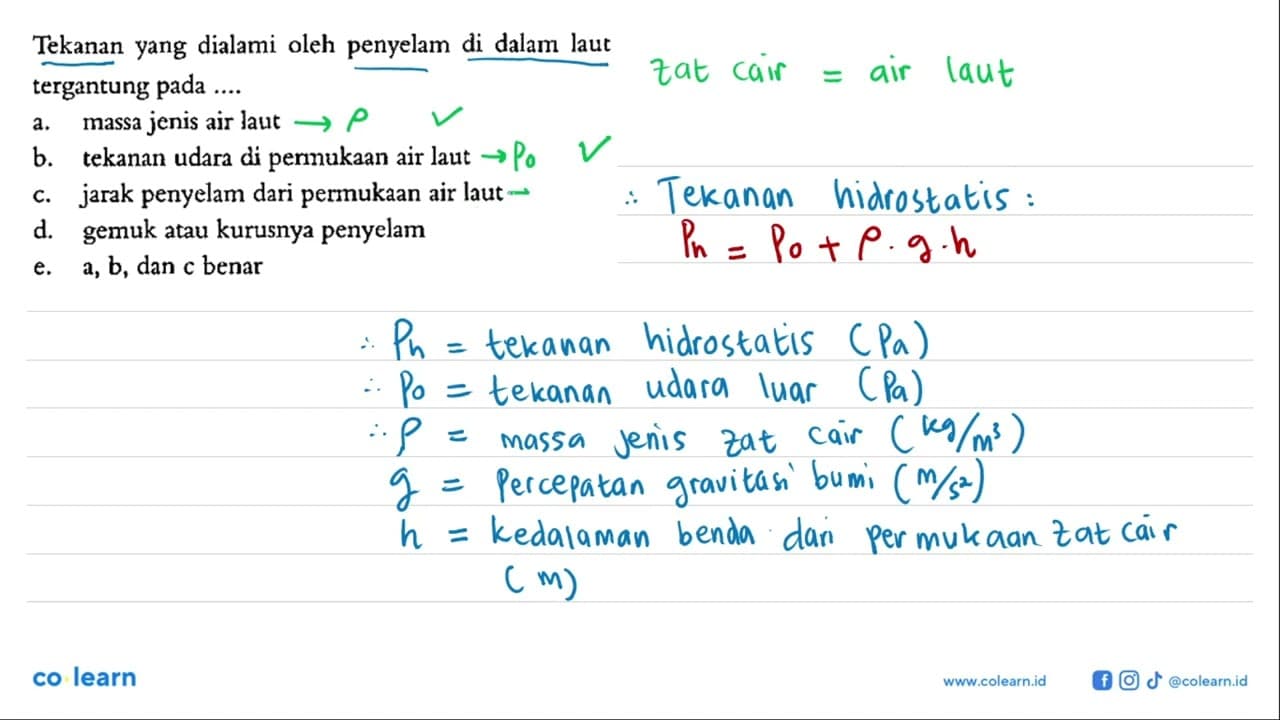 Tekanan yang dialami oleh penyelam di dalam laut
tergantung pada ....
a. massa jenis air laut → ρ ✓
b. tekanan udara di permukaan air laut → Po ✓
c. jarak penyelam dari permukaan air laut →
d. gemuk atau kurusnya penyelam
e. a, b, dan c benar
zat cair = air laut
∴ Tekanan hidrostatis :
Ph = Po + ρ . g . h
∴ Ph = tekanan hidrostatis (Pa)
∴ Po = tekanan udara luar (Pa)
∴ ρ = massa jenis zat cair (kg/m³)
g = Percepatan gravitasi bumi (m/s²)
h = kedalaman benda dari permukaan zat cair
(m)
co learn
www.colearn.id
@colearn.id